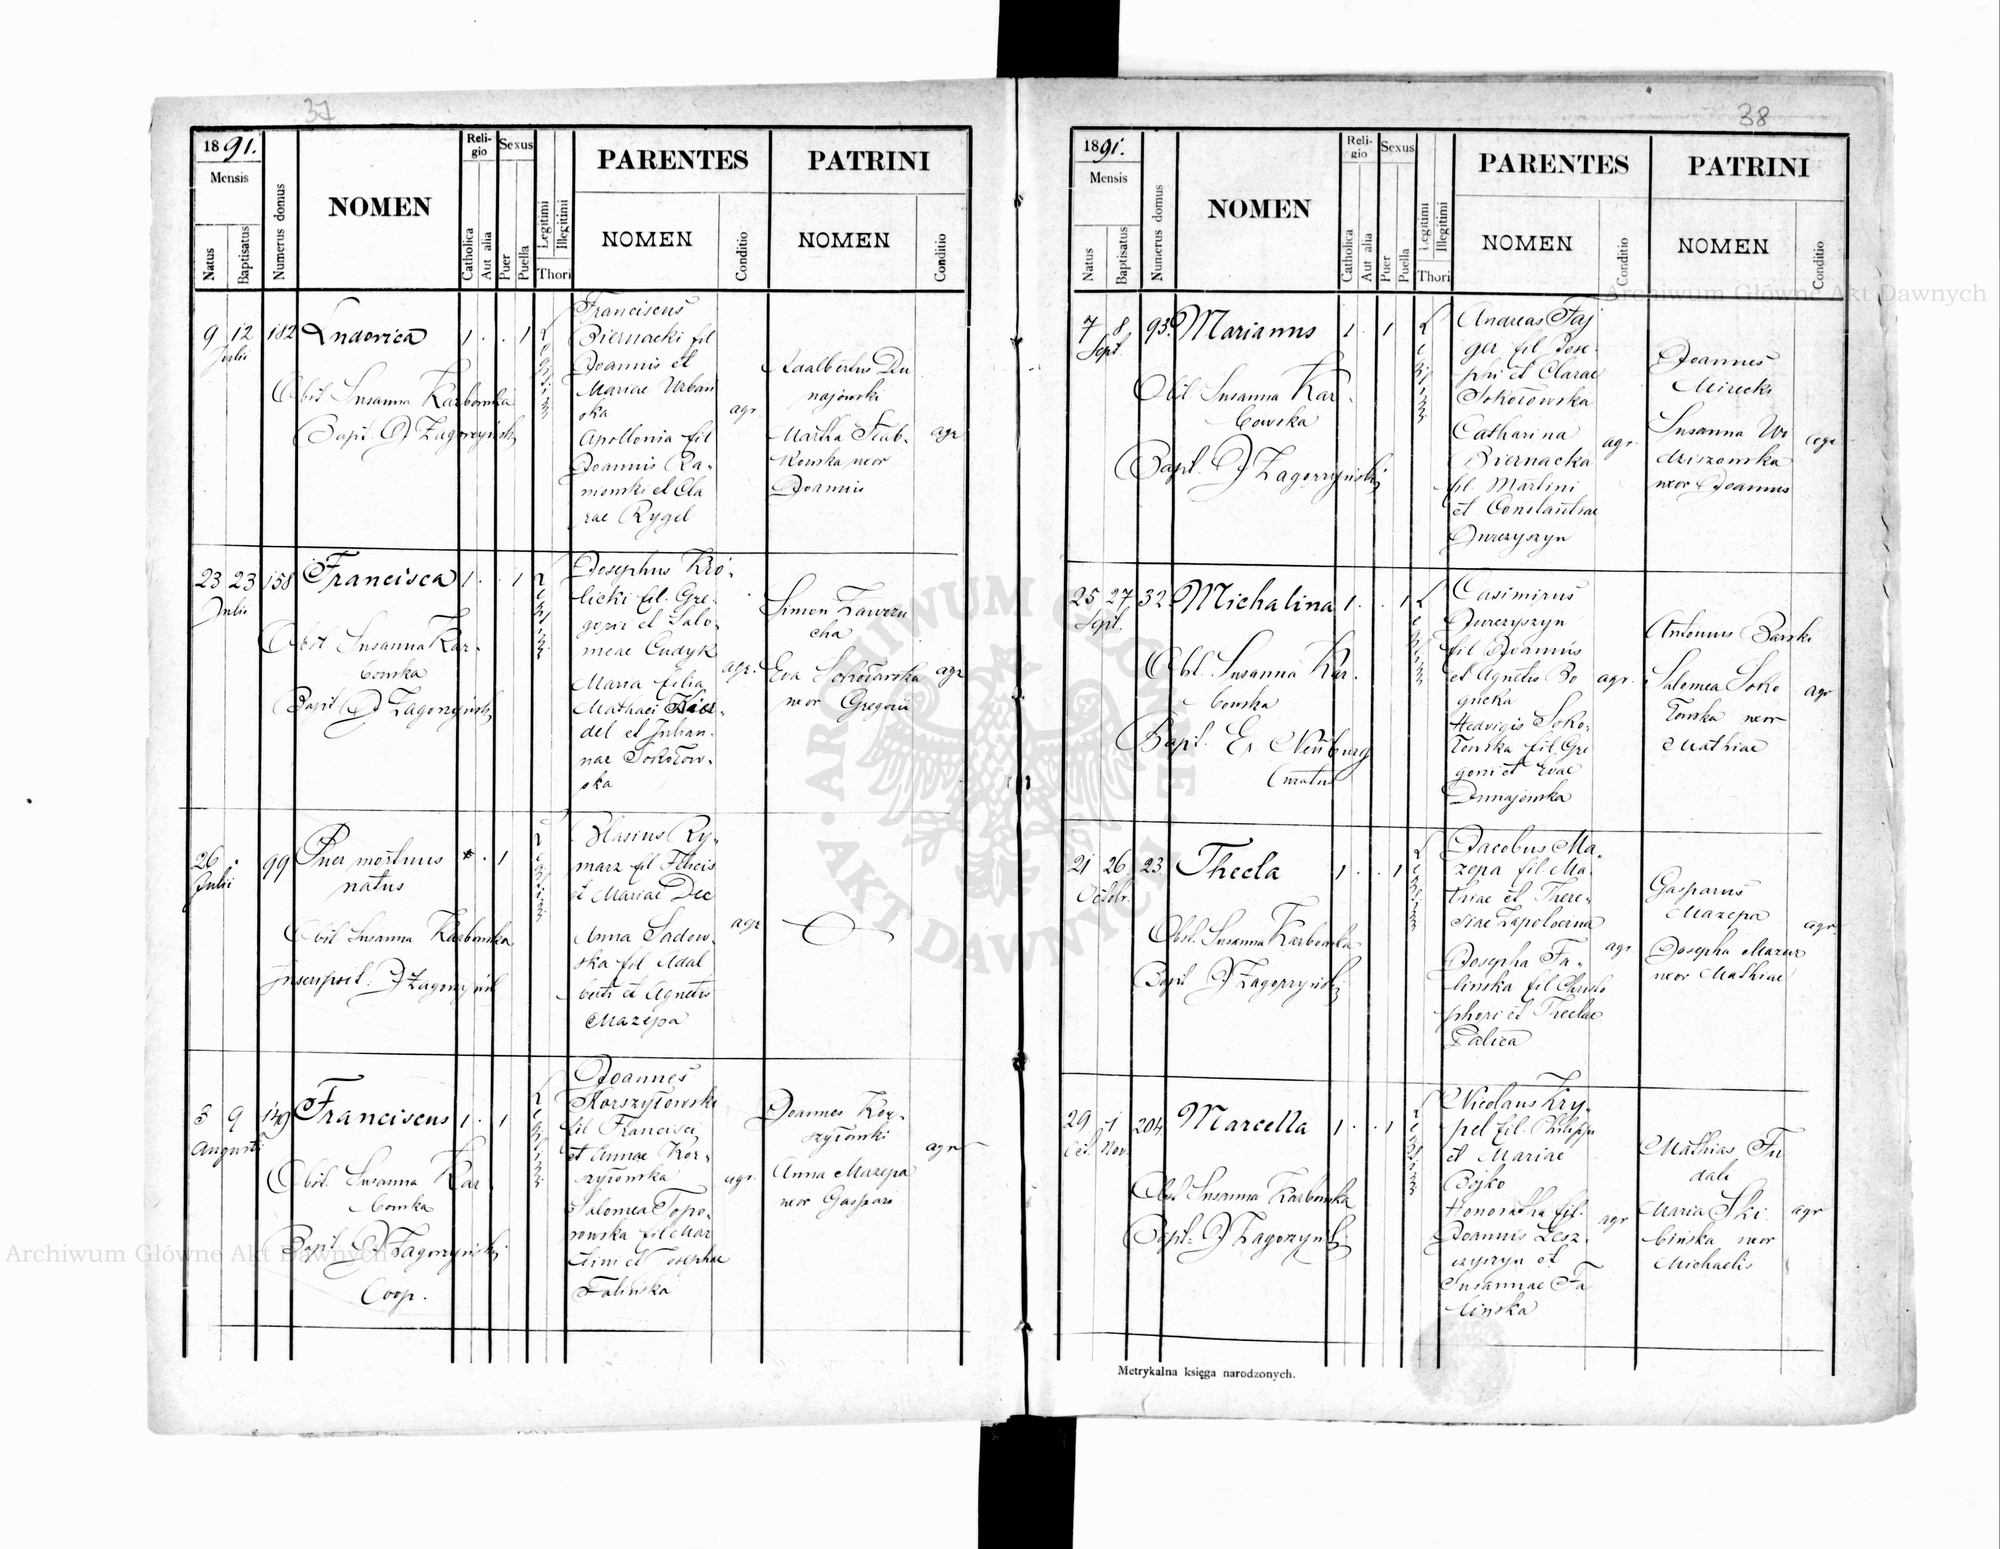 37
1891.
Mensis
Natus
Baptisatus
Numerus domus
NOMEN
Religio
Catholica
Aut alia
Sexus
Puer
Puella
Legitimi
Illegitimi
Thori
PARENTES
NOMEN
Conditio
PATRINI
NOMEN
Conditio
9 12 182 Ludovica 1 . . 1
Julii
Obst Susanna Karbowska
Bapt. J Zagorzyński
Franciscus
Biernacki fil
Joannis et
Mariae Urban
ska
Apollonia fil
Joannis Ra-
mowski et Cla
rae Rygel
agr.
Adalbertus Du
najowski
Martha Szab-
kowska uxor
Joannis
agr
23 23 158 Francisca 1 . . 1
Julii
Obst Susanna Kar-
bowska
Bapt J Zagorzyński
Josephus Kró-
licki fil. Gre-
gorii et Salo-
meae Cudyk
Maria filia
Mathaei
del et Julian-
nae Sokołow-
ska
agr.
Simon Zawrzu
cha
Eva Sokołowska
uxor Gregorii
agr
26 . 99 Puer mortuus
natus
Julii
Obst Susanna Karbowska
J Zagorzyński
Blasius Ry-
marz fil Felicis
et Mariae Dec
Anna Sadow-
ska fil Adal
berti et Agnetis
Mazepa
agr
3 9 149 Franciscus 1 . 1
Augusti
Obst. Susanna Kar
bowska
Bapt. J Zagorzyński
Coop.
Joannes
Korszyłowski
fil Francisci
et Annae Kor-
szyłowska
Salomea Topo-
rowska fil Mar
tini et Josephae
Falińska
agr.
Joannes Kor-
szyłowski
Anna Mazepa
uxor Gaspari
agr
38
1891.
Mensis
Natus
Baptisatus
Numerus domus
NOMEN
Religio
Catholica
Aut alia
Sexus
Puer
Puella
Legitimi
Illegitimi
Thori
PARENTES
NOMEN
Conditio
PATRINI
NOMEN
Conditio
7 8 93. Marianus 1 . 1
Sept.
Obst Susanna Kar
bowska
Bapt. J Zagorzyński
Andreas Faj
ger fil Jose-
phi et Clarae
Sokołowska
Catharina
Biernacka
fil. Martini
et Constantiae
Jurczyszyn
agr.
Joannes
Mirecki
Susanna Wo
dziszowska
uxor Joannis
agr
25 27 32 Michalina 1 . . 1
Sept.
Obst. Susanna Kar-
bowska
Bapt. Er Neüburg
Curatus
Casimirus
Jurczyszyn
fil Joannis
et Agnetis Bo
gucka
Hedvigis Soko-
łowska fil Gre
gorii et Evae
Dunajowska
agr.
Antonius Barski
Salomea Soko
łowska uxor
Mathiae
agr
21 26 23 Thecla 1 . . 1
Octobr.
Obst. Susanna Karbowska
Bapt J Zagorzyński
Jacobus Ma-
zepa fil Ma-
thiae et There-
siae Zapołocna
Josepha Fa-
lińska fil Christo
phori et Theclae
Palica
agr
Gasparus
Mazepa
Josepha Mazur
uxor Mathiae
agr.
29 1 204 Marcella 1 . . 1
Oct. Nov.
Obst Susanna Karbowska
Bapt. J Zagorzyński
Nicolaus Kry-
pel fil. Philippi
et Mariae
Bojko
Honoratha fil.
Joannis Lesz-
czyszyn et
Susannae Fa
lińska
agr
Mathias Fu
dali
Maria Ski
bińska uxor
Michaelis
agr
Metrykalna księga narodzonych.
Archiwum Główne Akt Dawnych
Archiwum Główne Akt Dawnych
ARCHIWUM GŁÓWNE AKT DAWNYCH